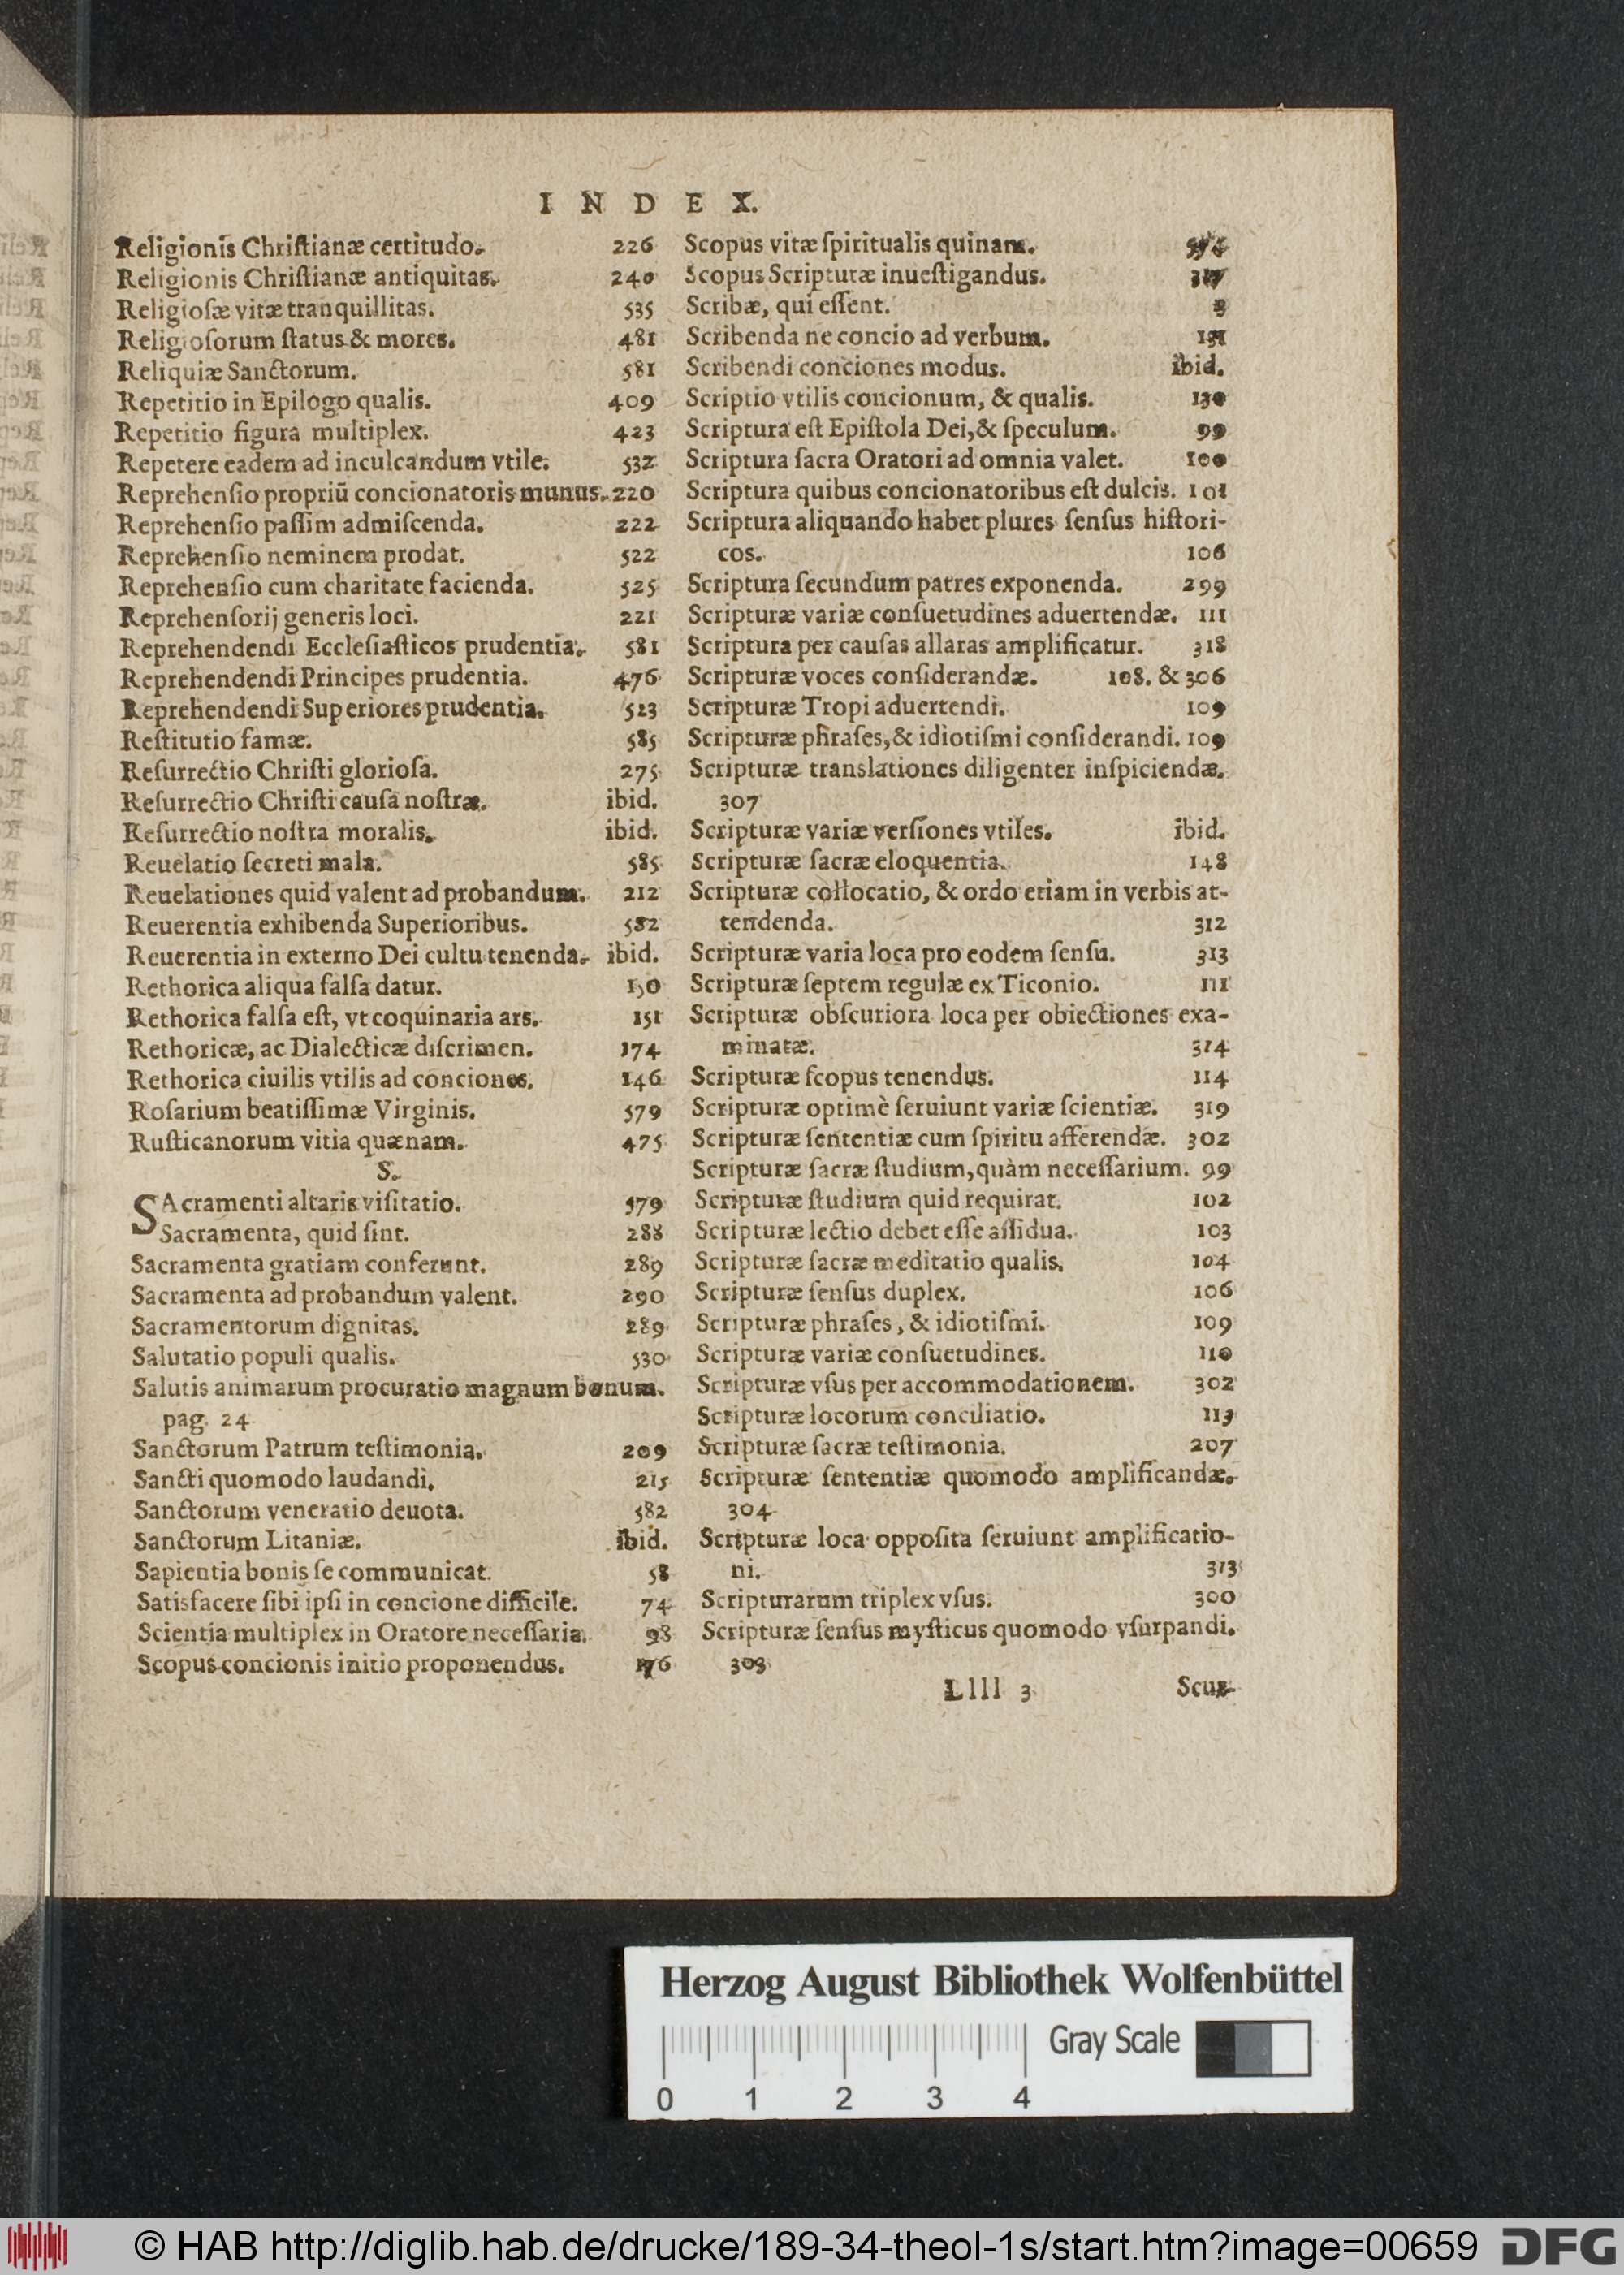 INDEX.
Religionis Chriſtianæ certitudo. 226
Religionis Chriſtianæ antiquitas. 240
Religioſæ vitæ tranquillitas. 535
Religioſorum ſtatus & mores. 481
Reliquiæ Sanctorum. 581
Repetitio in Epilogo qualis. 409
Repetitio figura multiplex. 423
Repetere eadem ad inculcandum vtile. 532
Reprehenſio propriũ concionatoris munus. 220
Reprehenſio paſſim admiſcenda. 222
Reprehenſio neminem prodat. 522
Reprehenſio cum charitate facienda. 525
Reprehenſorij generis loci. 221
Reprehendendi Eccleſiaſticos prudentia. 581
Reprehendendi Principes prudentia. 476
Reprehendendi Superiores prudentia. 523
Reſtitutio famæ. 585
Reſurrectio Chriſti glorioſa. 275
Reſurrectio Chriſti cauſa noſtræ. ibid.
Reſurrectio noſtra moralis. ibid.
Reuelatio ſecreti mala. 585
Reuelationes quid valent ad probandum. 212
Reuerentia exhibenda Superioribus. 582
Reuerentia in externo Dei cultu tenenda. ibid.
Rethorica aliqua falſa datur. 150
Rethorica falſa eſt, vt coquinaria ars. 151
Rethoricæ, ac Dialecticæ diſcrimen. 174
Rethorica ciuilis vtilis ad conciones. 146
Roſarium beatiſſimæ Virginis. 579
Ruſticanorum vitia quænam. 475
S.
SAcramenti altaris viſitatio. 579
Sacramenta, quid ſint. 288
Sacramenta gratiam conferunt. 289
Sacramenta ad probandum valent. 290
Sacramentorum dignitas. 289
Salutatio populi qualis. 530
Salutis animarum procuratio magnum bonum.
pag. 24
Sanctorum Patrum teſtimonia. 209
Sancti quomodo laudandi. 215
Sanctorum veneratio deuota. 582
Sanctorum Litaniæ. ibid.
Sapientia bonis ſe communicat. 58
Satisfacere ſibi ipſi in concione difficile. 74
Scientia multiplex in Oratore neceſſaria. 98
Scopus concionis initio proponendus.
Scopus vitæ ſpiritualis quinam.
Scopus Scripturæ inueſtigandus.
Scribæ, qui eſſent.
Scribenda ne concio ad verbum.
Scribendi conciones modus. ibid.
Scriptio vtilis concionum, & qualis. 130
Scriptura eſt Epiſtola Dei, & ſpeculum. 99
Scriptura ſacra Oratori ad omnia valet. 100
Scriptura quibus concionatoribus eſt dulcis. 101
Scriptura aliquando habet plures ſenſus hiſtori-
cos. 106
Scriptura ſecundum patres exponenda. 299
Scripturæ variæ conſuetudines aduertendæ. 111
Scriptura per cauſas allaras amplificatur. 318
Scripturæ voces conſiderandæ. 108. & 306
Scripturæ Tropi aduertendi. 109
Scripturæ phraſes, & idiotiſmi conſiderandi. 109
Scripturæ translationes diligenter inſpiciendæ.
307
Scripturæ variæ verſiones vtiles. ibid.
Scripturæ ſacræ eloquentia. 148
Scripturæ collocatio, & ordo etiam in verbis at-
tendenda. 312
Scripturæ varia loca pro eodem ſenſu. 313
Scripturæ ſeptem regulæ ex Ticonio. 111
Scripturæ obſcuriora loca per obiectiones exa-
minatæ. 314
Scripturæ ſcopus tenendus. 114
Scripturæ optimè ſeruiunt variæ ſcientiæ. 319
Scripturæ ſententiæ cum ſpiritu afferendæ. 302
Scripturæ ſacræ ſtudium, quàm neceſſarium. 99
Scripturæ ſtudium quid requirat. 102
Scripturæ lectio debet eſſe aſſidua. 103
Scripturæ ſacræ meditatio qualis. 104
Scripturæ ſenſus duplex. 106
Scripturæ phraſes, & idiotiſmi. 109
Scripturæ variæ conſuetudines. 110
Scripturæ vſus per accommodationem. 302
Scripturæ locorum conciliatio. 113
Scripturæ ſacræ teſtimonia. 207
Scripturæ ſententiæ quomodo amplificandæ.
304
Scripturæ loca oppoſita ſeruiunt amplificatio-
ni. 313
Scripturarum triplex vſus. 300
Scripturæ ſenſus myſticus quomodo vſurpandi.
303
Llll 3 Scur-
Herzog August Bibliothek Wolfenbüttel
Gray Scale
0 1 2 3 4
© HAB http://diglib.hab.de/drucke/189-34-theol-1s/start.htm?image=00659 DFG